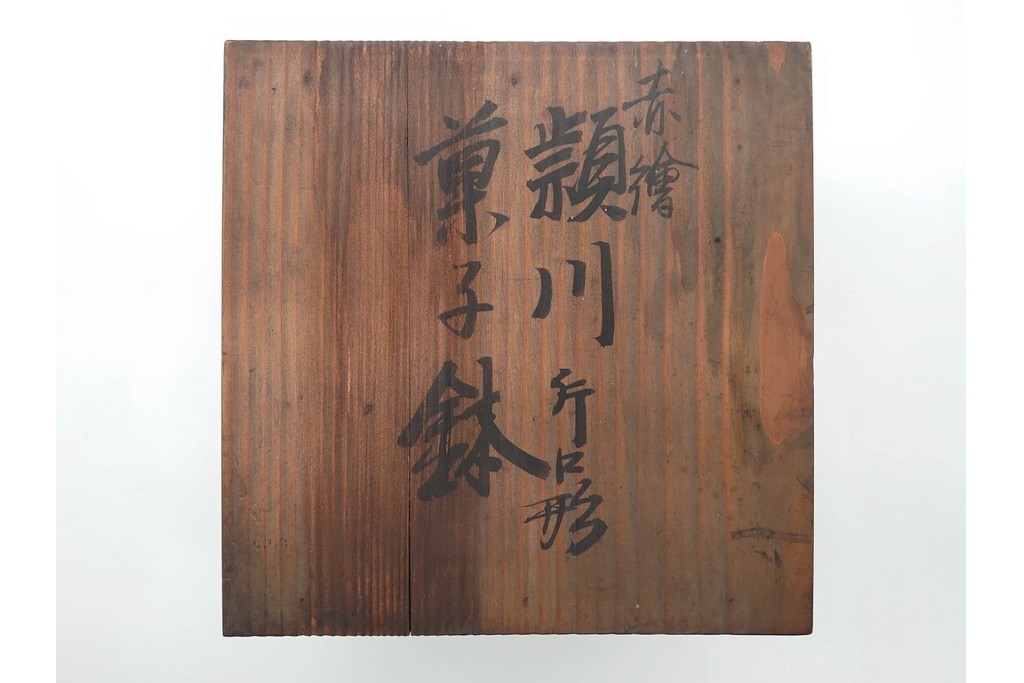 赤繪
頴川 口形
菓子鉢